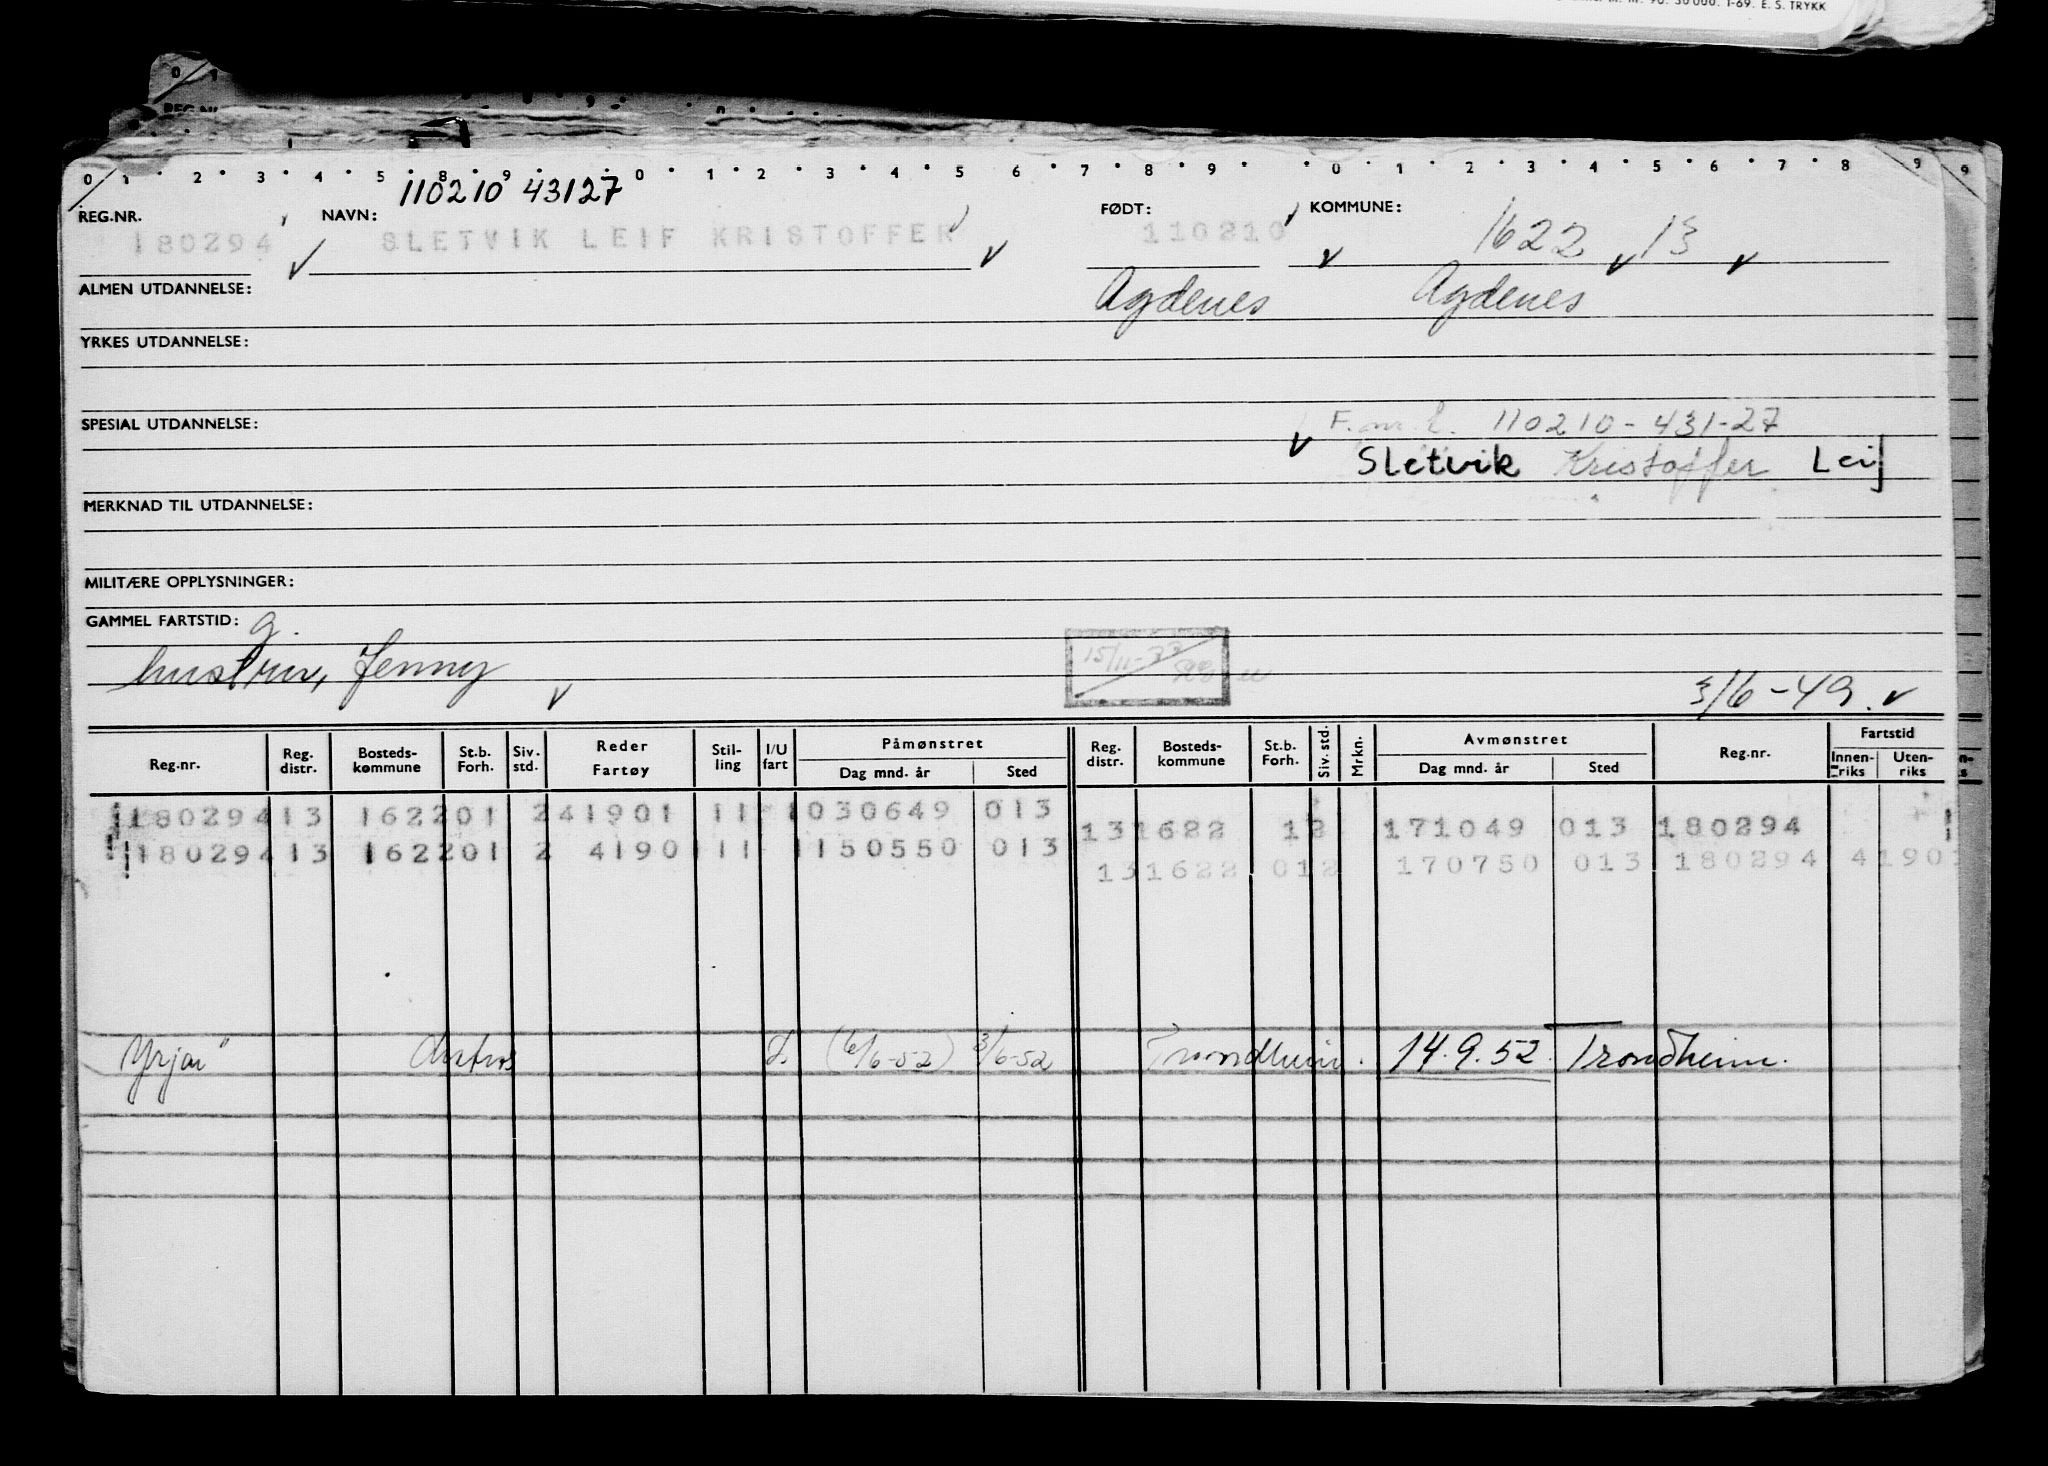 1-69. E. S. TRYKK
0 1 2 3 4 5 8 9 0 1 2 3 4 5 6 7 8 9 0 1 2 3 4 5 6 7 8 9
110210 43127
REG.NR. NAVN: FØDT: KOMMUNE:
180294 SLETVIK LEIF KRISTOFFER 110210 1622 13
ALMEN UTDANNELSE: Agdenes Agdenes
YRKES UTDANNELSE:
SPESIAL UTDANNELSE: 110210-431-27
Sletvik Kristoffer Leif
MERKNAD TIL UTDANNELSE:
MILITÆRE OPPLYSNINGER:
GAMMEL FARTSTID: g.
hustru, Jenny
3/6-49.
Reg.nr. Reg. distr. Bosteds-kommune St.b. Forh. Siv. std. Reder Fartøy Stil-ling I/U fart Påmønstret Dag mnd. år Sted Reg. distr. Bosteds-kommune St.b. Forh. Siv. std. Mrkn. Avmønstret Dag mnd. år Sted Reg.nr. Fartstid Innen-riks Uten-riks
180294 13 1622 01 2 41901 11 1 030649 013 13 1622 12 171049 013 180294
180294 13 1622 01 2 4190 11 1 150550 013 13 1622 012 170750 013 180294 41901
Yrjar" (6/6-52) 3/6-52 Trondheim. 14.9.52. Trondheim.